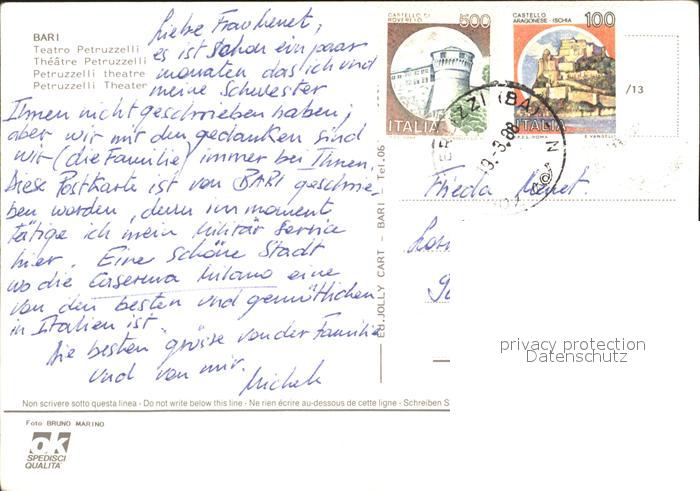 BARI
Teatro Petruzzelli
Théâtre Petruzzelli
Petruzzelli theatre
Petruzzelli Theater
Liebe Frau Menet,
es ist schon ein paar
monaten das ich und
meine Schwester
Ihnen nicht geschrieben haben,
aber wir mit den gedanken sind
wir (die Familie) immer bei Ihnen.
Diese Postkarte ist von BARI geschrie-
ben worden, denn im moment
tätige ich mein Militär Service
hier. Eine schöne Stadt
wo die Caserma Milano eine
von den besten und gemütlichen
in Italien ist.
Die besten grüsse von der Familie
und von mir.
Michele
CASTELLO DI
ROVERETO
500
ITALIA
CASTELLO
ARAGONESE - ISCHIA
100
ITALIA
I.P.Z.S. ROMA
E. VANGELLI
(BA)
3.88
/13
Frieda Menet
ED. JOLLY CART - BARI - Tel. 06
privacy protection
Datenschutz
Non scrivere sotto questa linea - Do not write below this line - Ne rien écrire au-dessous de cette ligne - Schreiben S
Foto BRUNO MARINO
ok
SPEDISCI
QUALITÀ